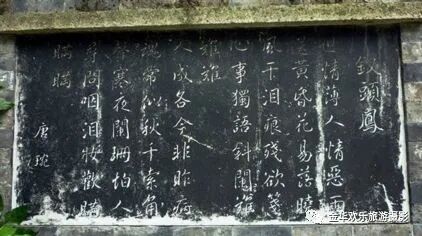 釵頭鳳
世情薄人情惡雨
送黃昏花易落曉
風干泪痕殘欲箋
心事獨語斜闌難
難難
人成各今非昨病
魂常似秋千索角
聲寒夜闌珊怕人
尋問咽泪妝歡瞞
瞞瞞
唐琬
金华欢乐旅游摄影